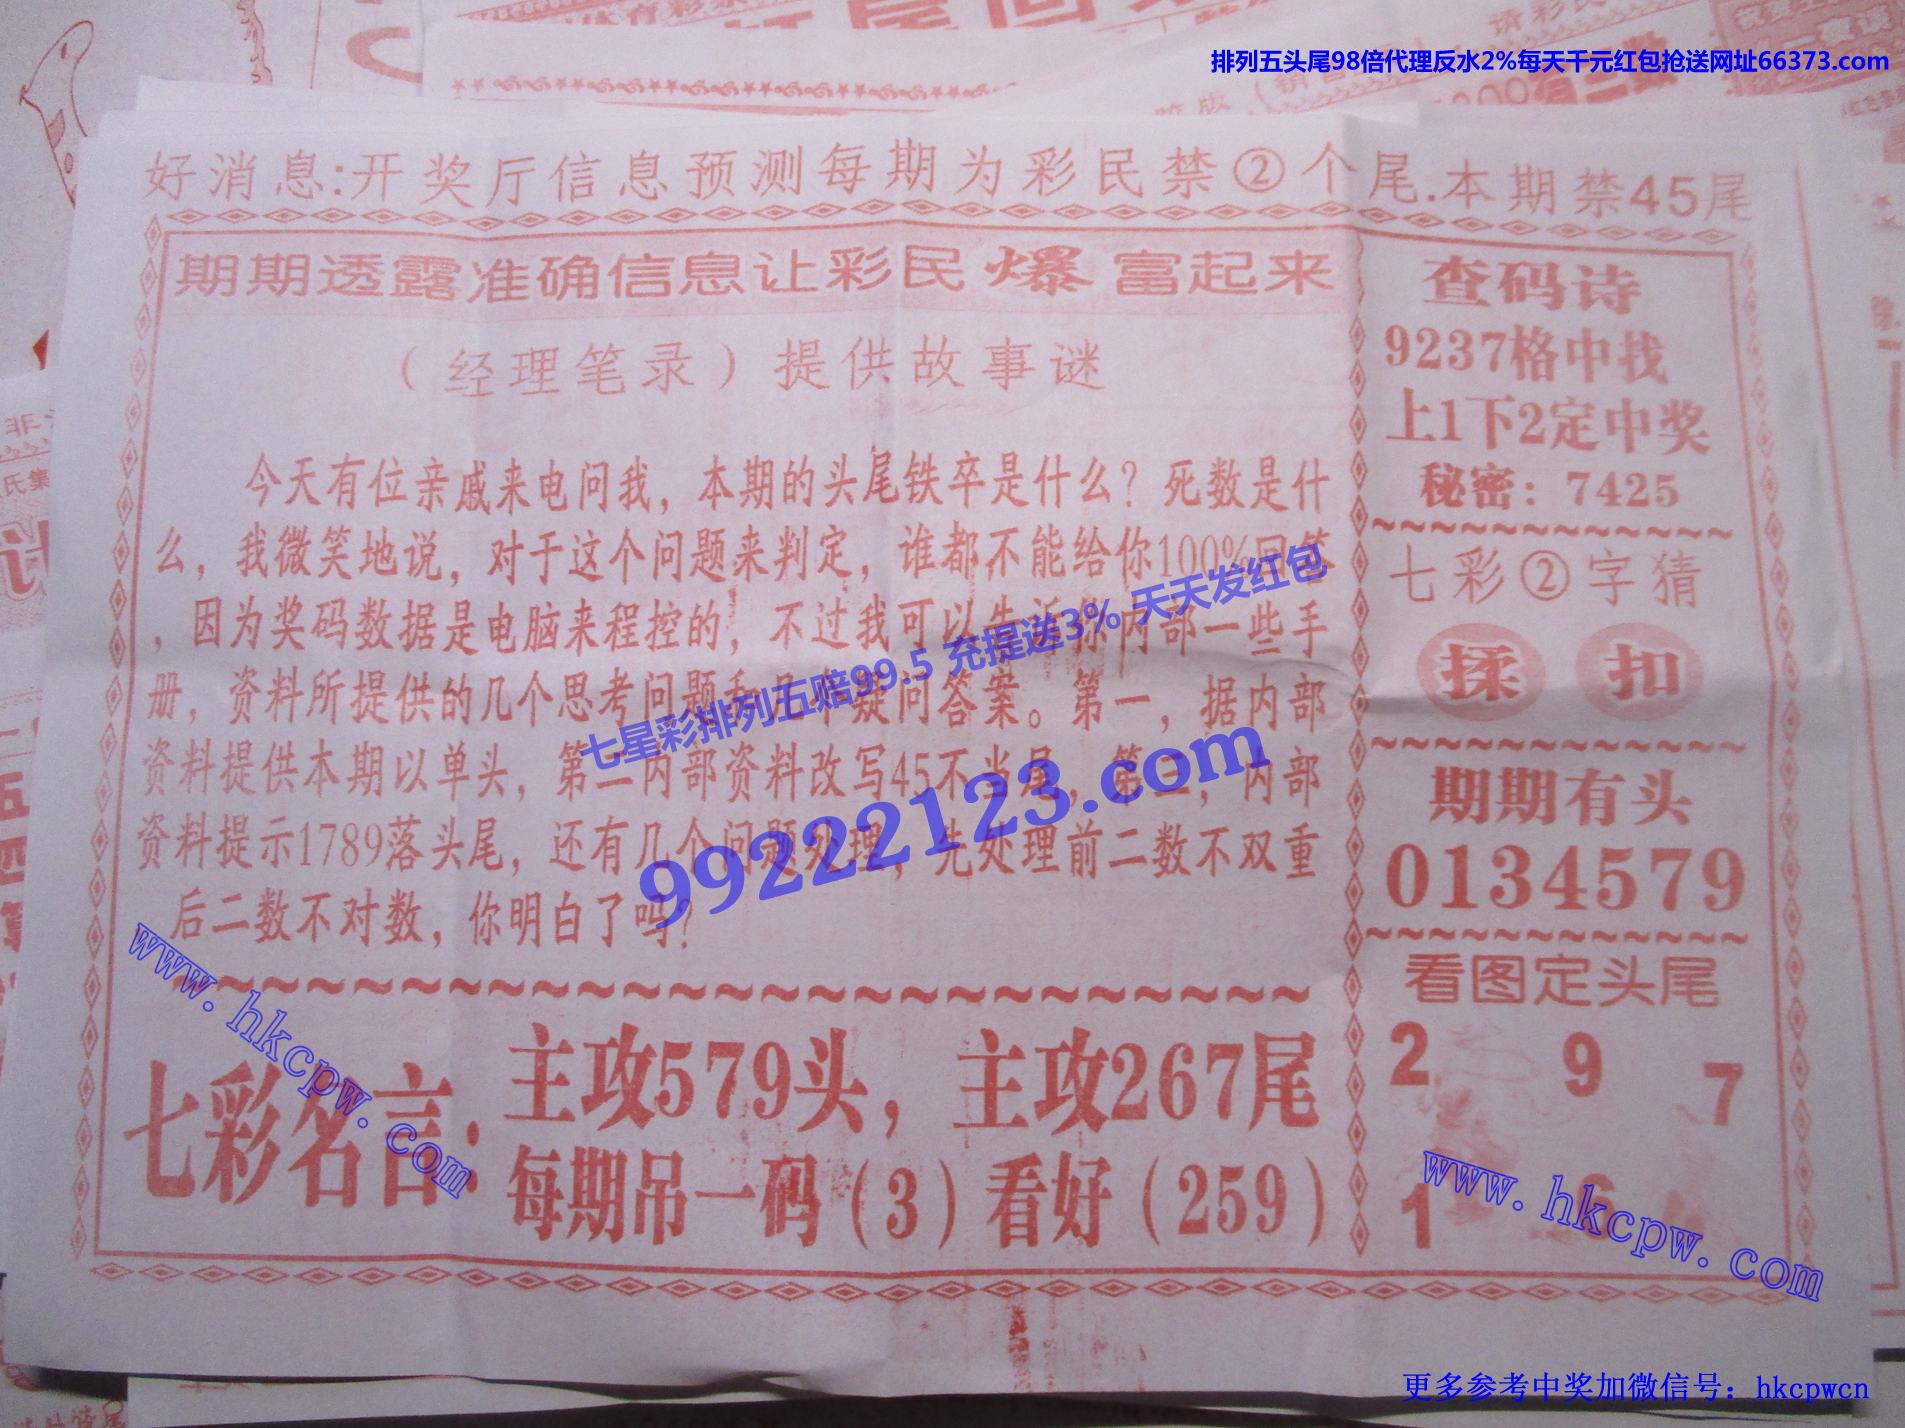 排列五头尾98倍代理反水2%每天千元红包抢送网址66373.com
好消息:开奖厅信息预测每期为彩民禁②个尾.本期禁45尾
期期透露准确信息让彩民爆富起来
（经理笔录）提供故事谜
今天有位亲戚来电问我，本期的头尾铁卒是什么？死数是什
么，我微笑地说，对于这个问题来判定，谁都不能给你100%回答
，因为奖码数据是电脑来程控的，不过我可以告诉你内部一些手
册，资料所提供的几个思考问题和几个疑问答案。第一，据内部
资料提供本期以单头，第二内部资料改写45不当尾，第三，内部
资料提示1789落头尾，还有几个问题处理，先处理前二数不双重
后二数不对数，你明白了吗？
七星彩排列五赔99.5 充提送3% 天天发红包
99222123.com
七彩名言:
主攻579头，主攻267尾
每期吊一码（3）看好（259）
查码诗
9237格中找
上1下2定中奖
秘密：7425
七彩②字猜
揉 扣
期期有头
0134579
看图定头尾
2 9 7
1 6
www.hkcpw.com
www.hkcpw.com
更多参考中奖加微信号：hkcpwcn